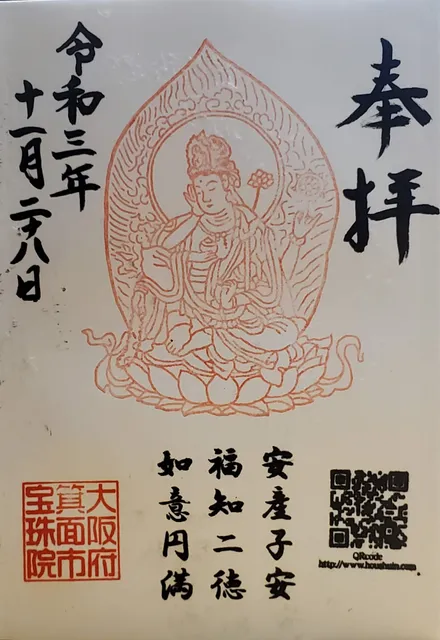 奉拝
令和三年
十一月二十八日
安産子安
福知二徳
如意円満
大阪府
箕面市
宝珠院
QRcode
http://www.houshuin.com